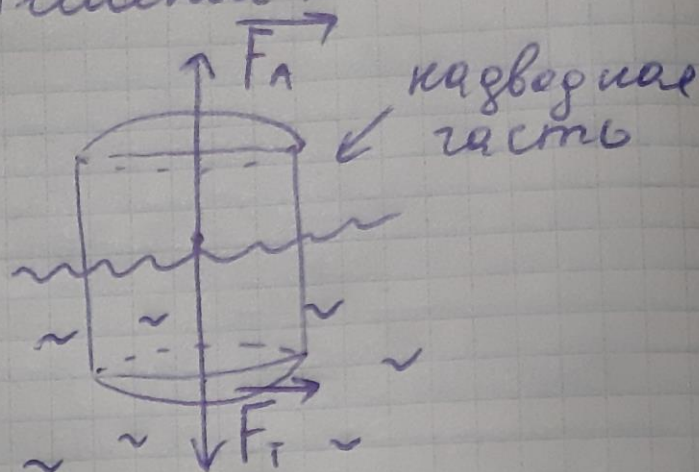 F_A
надводная
часть
F_T